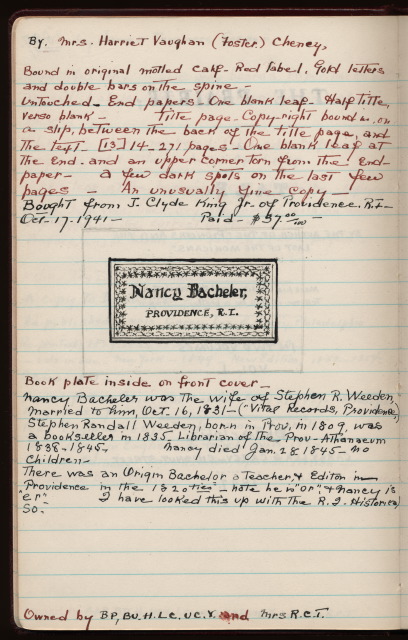 By. Mrs. Harriet Vaughan (Foster) Cheney,
Bound in original motled calf- Red label, Gold letters
and double bars on the spine-
Untouched- End papers- One blank leaf- Half title,
verso blank - Title page- Copy-right bound in, on
a slip, between the back of the title page, and
the text- [13] 14-271 pages- One blank leaf at
the End. and an upper corner torn from the End-
paper- a few dark spots on the last few
pages - An unusually fine copy-
Bought from J. Clyde King Jr. of Providence, R.I-
Oct-17-1941- Paid- $37.00
Nancy Bacheler,
PROVIDENCE, R.I.
Book plate inside on front cover-
Nancy Bacheler was the wife of Stephen R. Weeden,
married to him, Oct. 16, 1831-("Vital Records, Providence,)
Stephen Randall Weeden, born in Prov, in 1809, was
a bookseller in 1835. Librarian of the Prov-Athanaeum
1838-1845. Nancy died Jan. 28 1845- no
Children-
There was an Origin Bachelor a Teacher & Editor in
Providence in the 1820ties- note he is "or", & Nancy is
"er". I have looked this up with the R.I. Historical
So.
Owned by BP, BU, H. LC, UC. Y. and Mrs R.C.T.